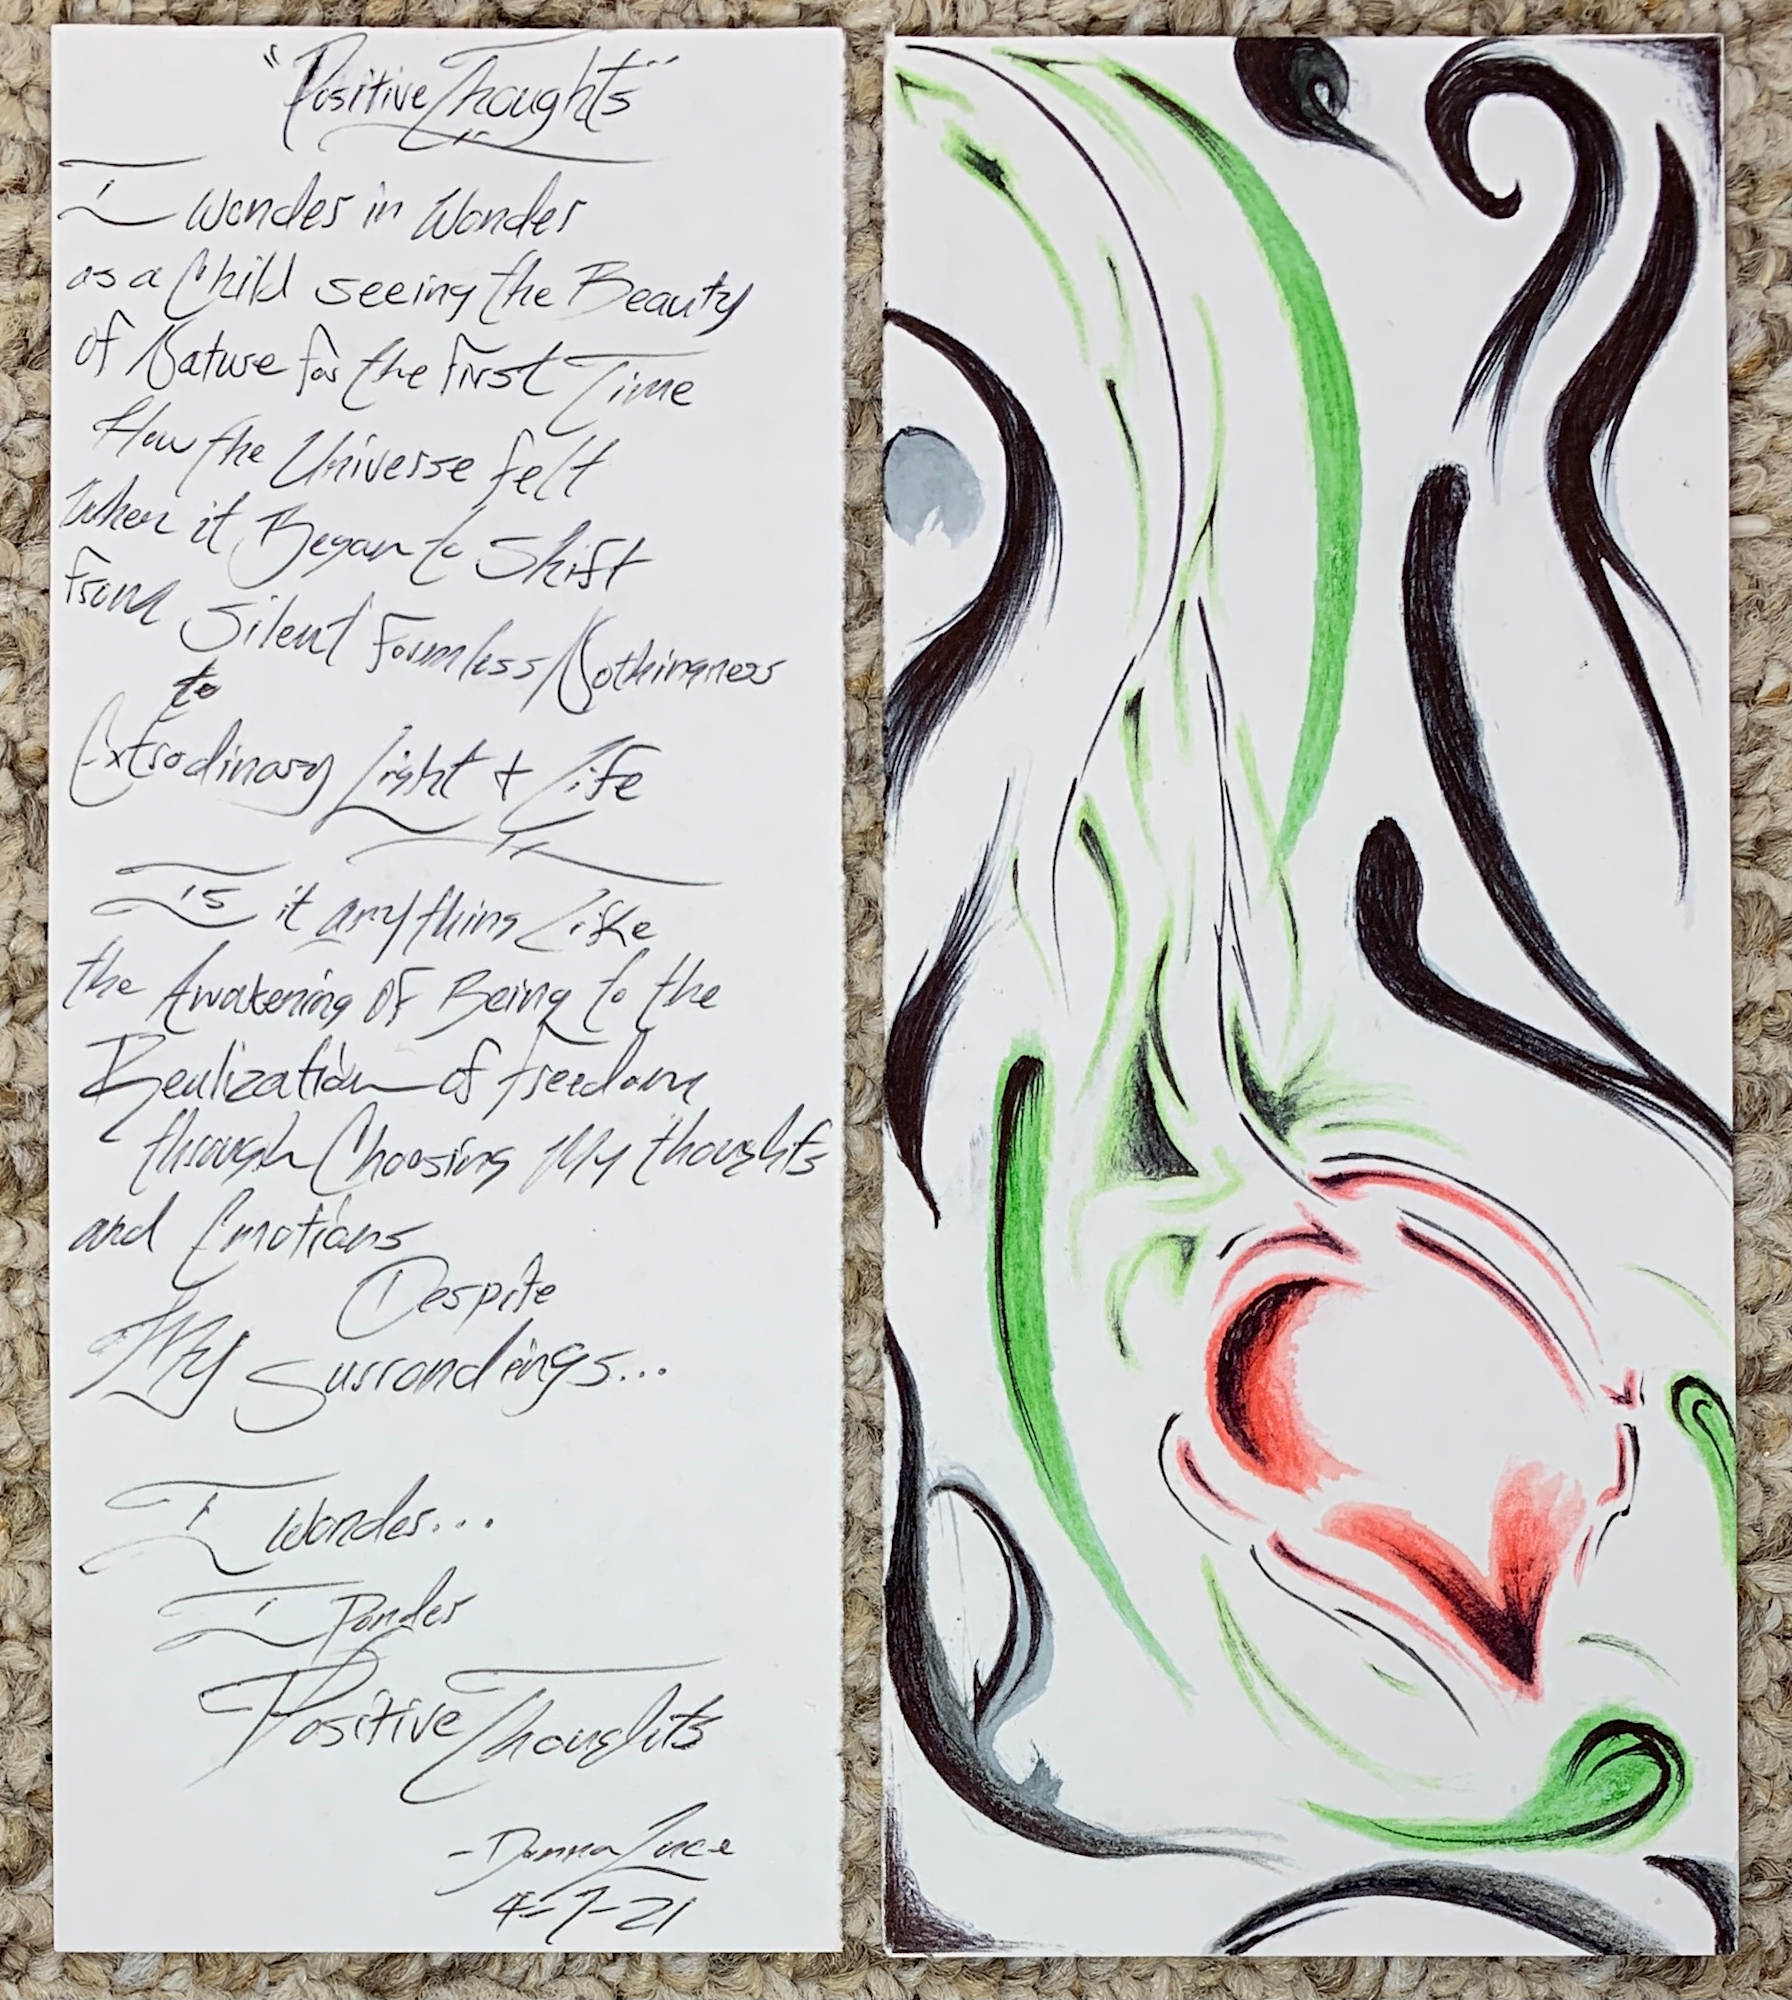 "Positive Thoughts"
I Wonder in Wonder
as a Child seeing the Beauty
of Nature for the First Time
How the Universe felt
When it Began to Shift
From Silent Formless Nothingness
to
Extrodinary Light + Life
Is it anything Like
the Awakening of Being to the
Realization of freedom
through Choosing My thoughts
and Emotions
Despite
My Surrondings...
I Wonder...
I Ponder
Positive Thoughts
- Donna Luce
4-7-21